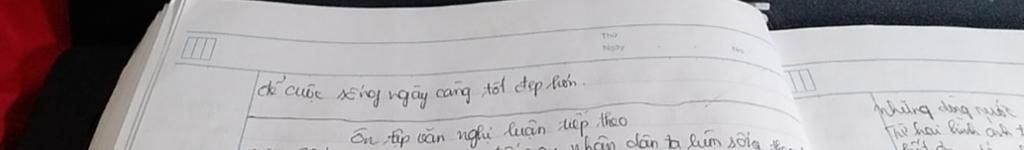 Thứ
Ngày No.
để cuộc sống ngày càng tốt đẹp hơn.
Ôn tập văn nghị luận tiếp theo
nhân dân ta luôn sống
những dòng nước
Thứ hai hình ảnh